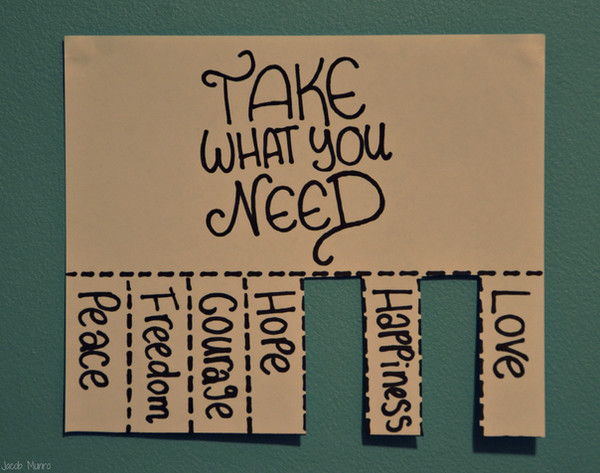 TAKE
WHAT YOU
NEED
Peace
Freedom
Courage
Hope
Happiness
Love
Jacob Munro